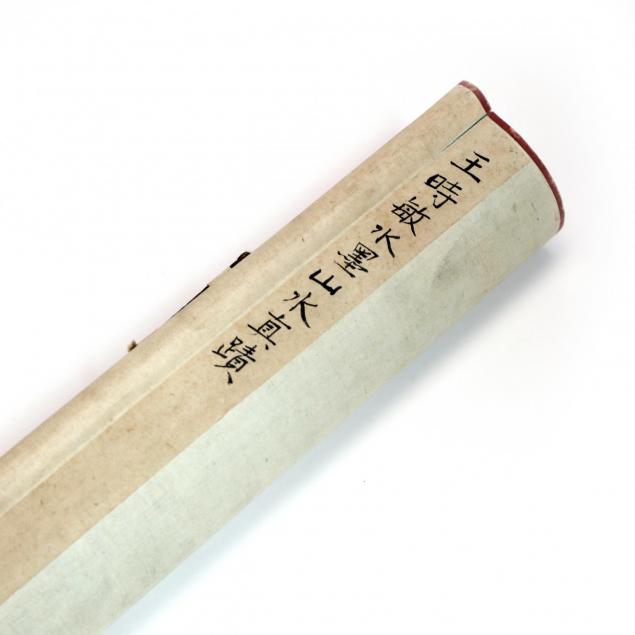 王時敏水墨山水真蹟